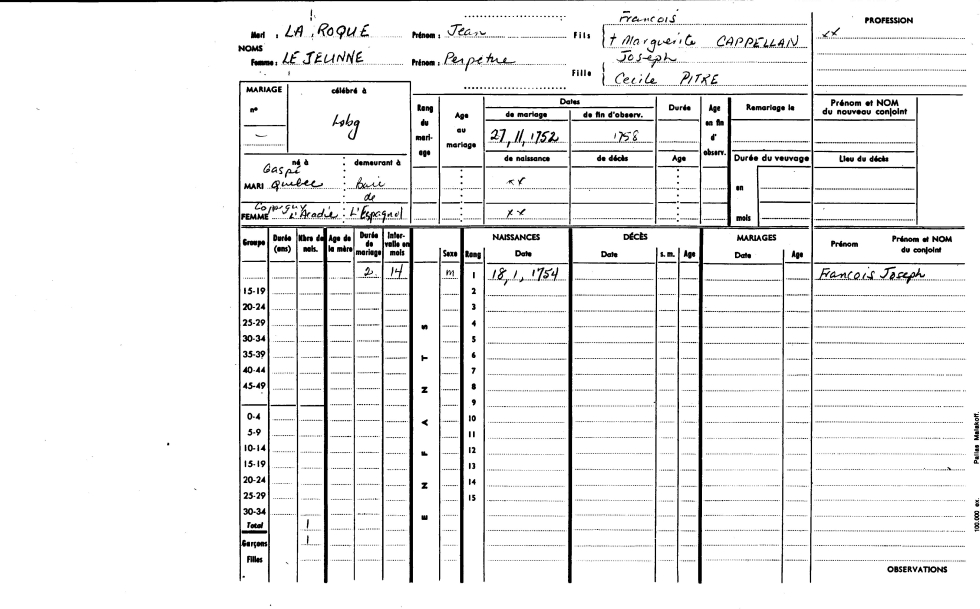 Mari : LA ROQUE Prénom : Jean Fils François PROFESSION
† Marguerite CAPPELLAN xx
NOMS
Femme : LE JEUNNE Prénom : Perpetue Fille Joseph
Cecile PITRE
MARIAGE célébré à
n° Lsbg
—
Rang du mariage Age au mariage Dates Durée Age en fin d'observ. Remariage le Prénom et NOM du nouveau conjoint
de mariage de fin d'observ.
27, 11, 1752 1758
de naissance de décès Age Durée du veuvage Lieu du décès
né à demeurant à
Gaspé
MARI Quebec Baie xx en
de
FEMME L'Acadie L'Espagnol xx mois
Groupe Durée (ans) Nbre de nais. Age de la mère Durée de mariage Intervalle en mois ENFANTS Sexe Rang NAISSANCES DÉCÈS MARIAGES Prénom Prénom et NOM du conjoint
Date Date s. m. Age Date Age
2 14 m 1 18, 1, 1754 Francois Joseph
15-19 2
20-24 3
25-29 4
30-34 5
35-39 6
40-44 7
45-49 8
9
0-4 10
5-9 11
10-14 12
15-19 13
20-24 14
25-29 15
30-34
Total 1
Garçons 1
Filles
OBSERVATIONS
100.000 ex. Pallas Malakoff.